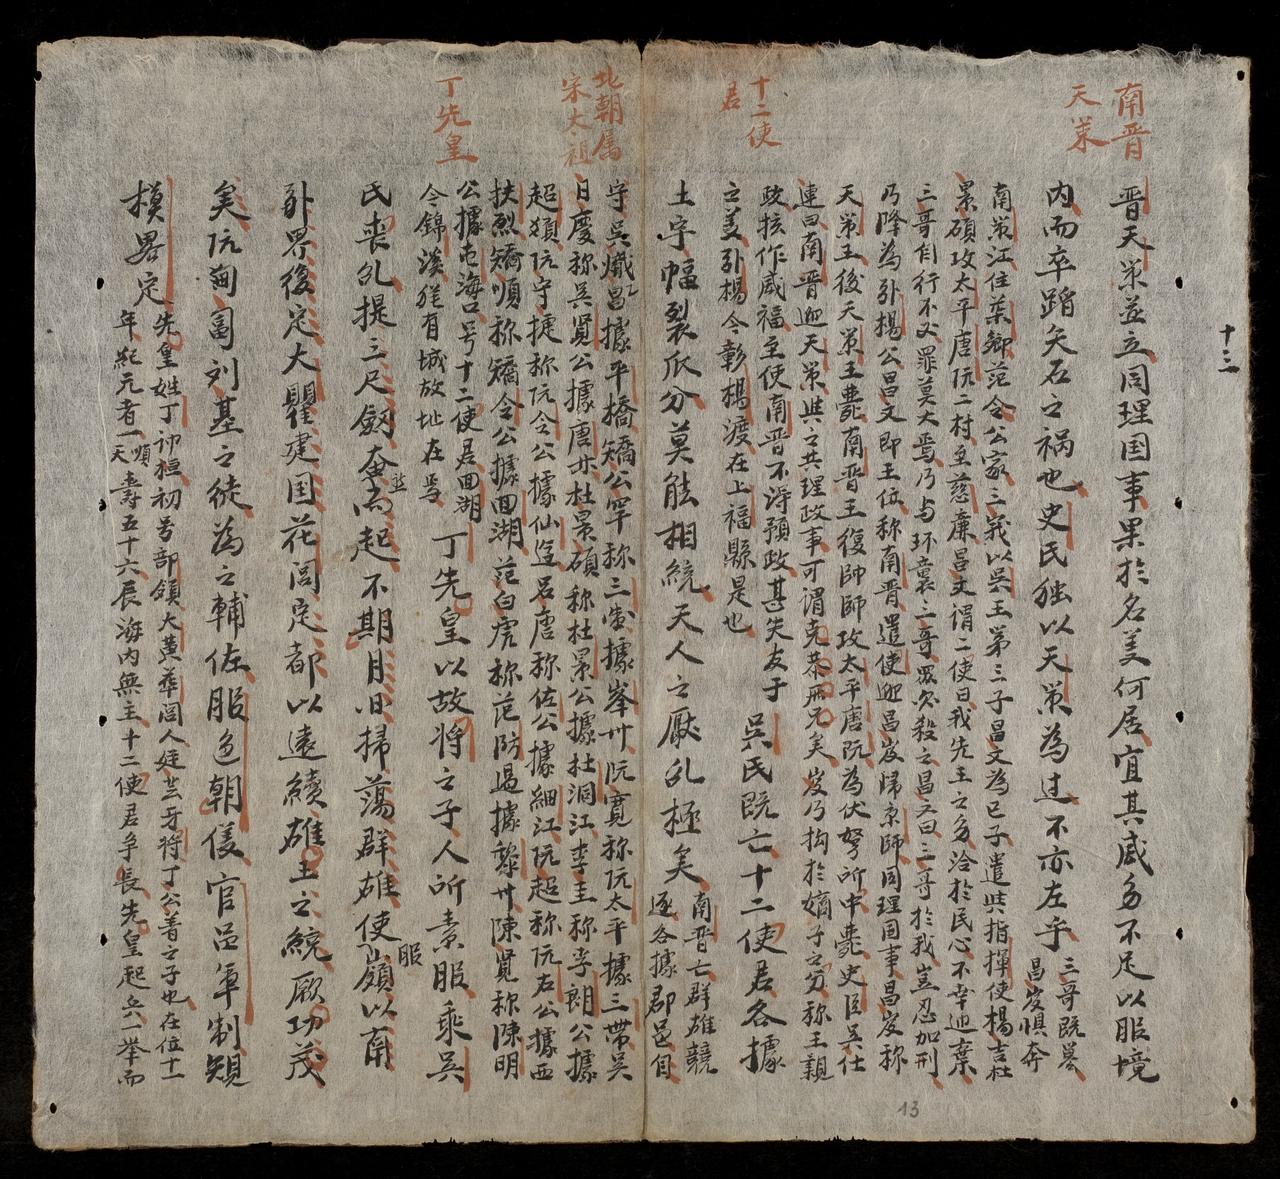 南晋
天策
十二使
君
十三
晋天策並立同理国事果於名美何居宜其威多不足以服境
内而卒蹈矢石之祸也史氏独以天策為过不亦左乎三哥既篡
昌岌惧奔
南策江住茶鄉范令公家三義以吳王第三子昌文為已子遣與指揮使楊吉杜
景碩攻太平唐阮二村至慈廉昌文谓二使曰我先王之多洽於民心不幸迊棄
三哥自行不义罪莫大焉乃与环袭三哥眾欲殺之昌文曰三哥於我豈忍加刑
乃降為彰楊公昌文即王位称南晋遣使迎昌岌歸京師同理国事昌岌称
天策王後天策王薨南晋王復師師攻太平唐阮為伏弩所中薨史臣吳仕
連曰南晋迎天策與之共理政事可謂克恭厥兄矣岌乃拘於嫡子之分称王親
政核作威福主使南晋不淂預政甚失友于
之美彰楊今彰楊渡在上福縣是也
吳氏既亡十二使君各據
土宇幅裂瓜分莫能相統天人之厭乱極矣南晋亡群雄競
逐各據郡邑自
北朝属
宋太祖
丁先皇
守吳熾昌據平橋矯公罕称三制據峯卅阮寛称阮太平據三帯吳
日慶称吳賢公據唐亦杜景碩称杜景公據杜洞江李圭称李朗公據
超類阮守捷称阮令公據仙逰呂唐称佐公據細江阮超称阮右公據西
扶烈矯順称矯令公據囬湖范白虎称范防遏據藜卅陳覽称陳明
公據屯海口号十二使君囬湖
今錦溪猶有城故址在焉
丁先皇以故将之子人所素服乘吳
氏丧乱提三尺劔奋然而起不期月日掃蕩群雄使嶺以南
服
彰界後定大瞿建国花闾定都以遠續雄王之統厥功茂
矣阮匐匐刘基之徒為之輔佐服色朝儀官品軍制䂓
模畧定先皇姓丁讳桓初号部領大黄華闾人庭芸牙将丁公着之子也在位十一
年紀元者一順天壽五十六辰海内無主十二使君争長先皇起兵一举而
13